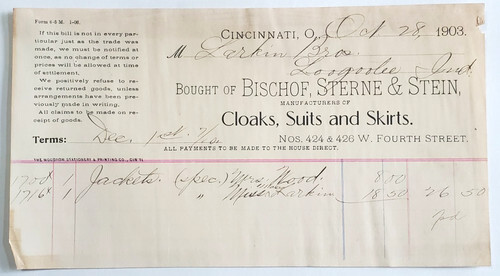 Form 6-5 M. 1-06.
If this bill is not in every particular just as the trade was made, we must be notified at once, as no change of terms or prices will be allowed at time of settlement.
We positively refuse to receive returned goods, unless arrangements have been previously made in writing.
All claims to be made on receipt of goods.
CINCINNATI, O., Oct 28, 1903.
M Larkin Bro
Loogootee Ind.
BOUGHT OF BISCHOF, STERNE & STEIN,
MANUFACTURERS OF
Cloaks, Suits and Skirts.
Terms: Dec. 1st.
NOS. 424 & 426 W. FOURTH STREET.
ALL PAYMENTS TO BE MADE TO THE HOUSE DIRECT.
THE WOODROW STATIONERY & PRINTING CO., CIN'TI.
1700 1 Jackets. (spec) Mrs. Wood. 8 00
1716 1 " Miss Larkin 18 50 26 50